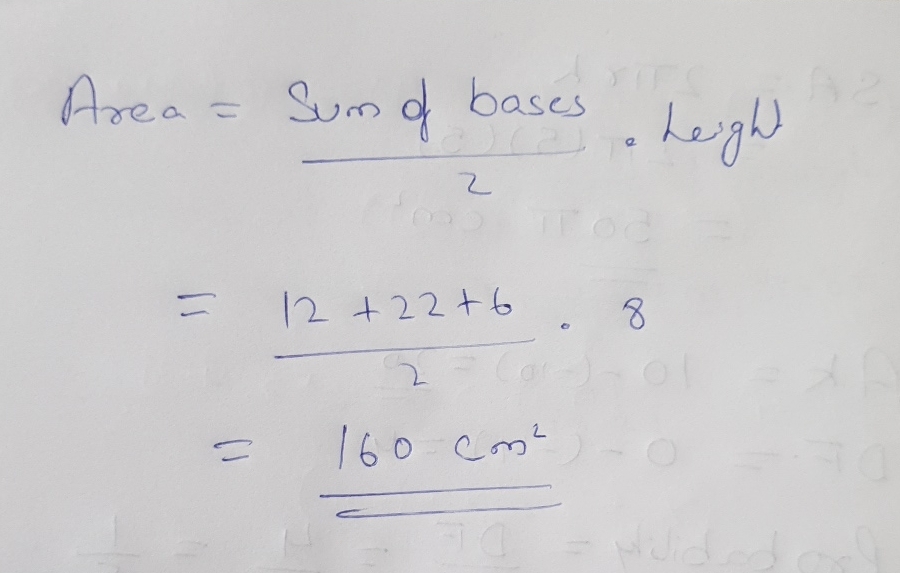 Area = Sum of bases / 2 . height
= 12 + 22 + 6 / 2 . 8
= 160 cm²